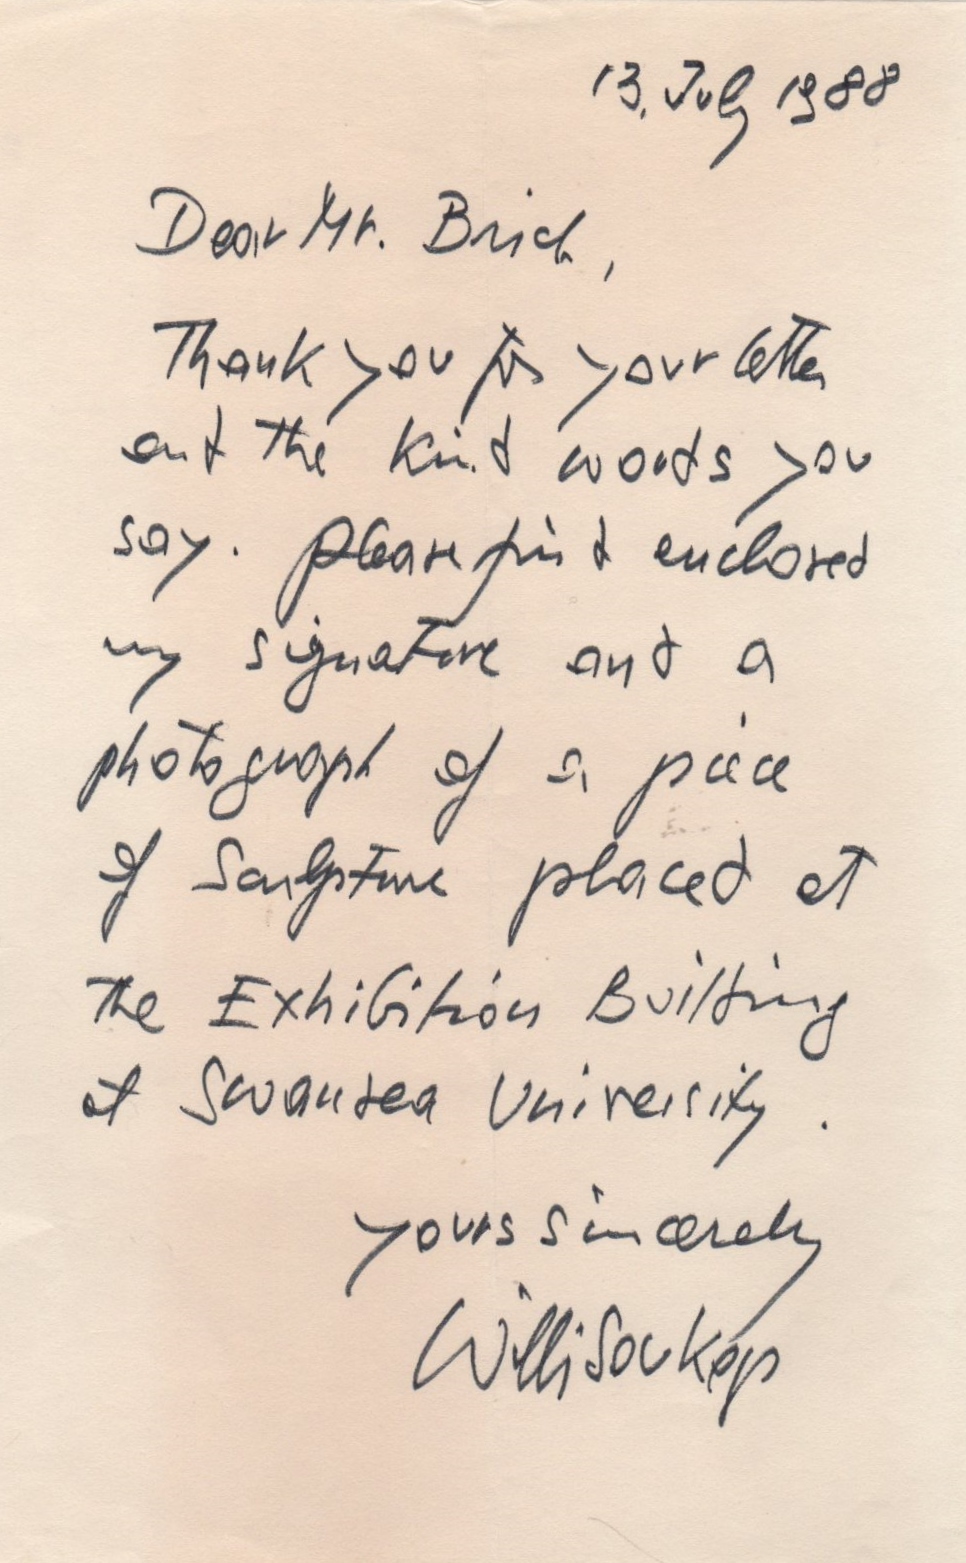 13. July 1988
Dear Mr. Brick,
Thank you for your letter
and the kind words you
say. please find enclosed
my signature and a
photograph of a piece
of Sculpture placed at
the Exhibition Building
at Swansea University.
yours sincerely
Willi Soukop